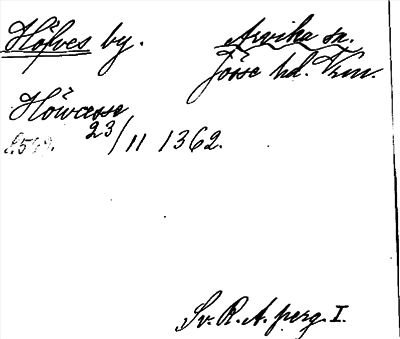 Höfves by.
Arvika sn.
Jösse hd. Vrm.
Höwæsse
23/11 1362.
Sv. R. A. perg. I.